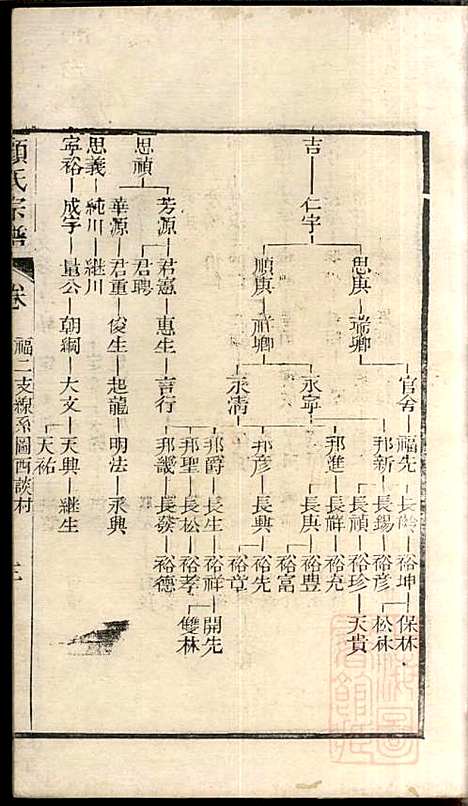 吉 仁宇 思庚 瑞卿 官舍 福先 長齡 裕坤 保林
松林
邦新 長錫 裕彦
長禎 裕珍 天貴
永寧 邦進 長祥 裕充
長庚 裕豐
裕富
順庚 祥卿 永清 邦彦 長興 裕先
裕章
思禎 芳源 君憲 惠生 言行 邦爵 長生 裕祥 開先
邦聖 長松 裕孝 雙林
邦畿 長發 裕德
君聘
華源 君重 俊生 起龍 明法 永興
思義 純川 繼川
寧裕 成宇 量公 朝綱 大文 天興 繼生
天祐
顧氏宗譜 卷 福二支線系圖西談村 三